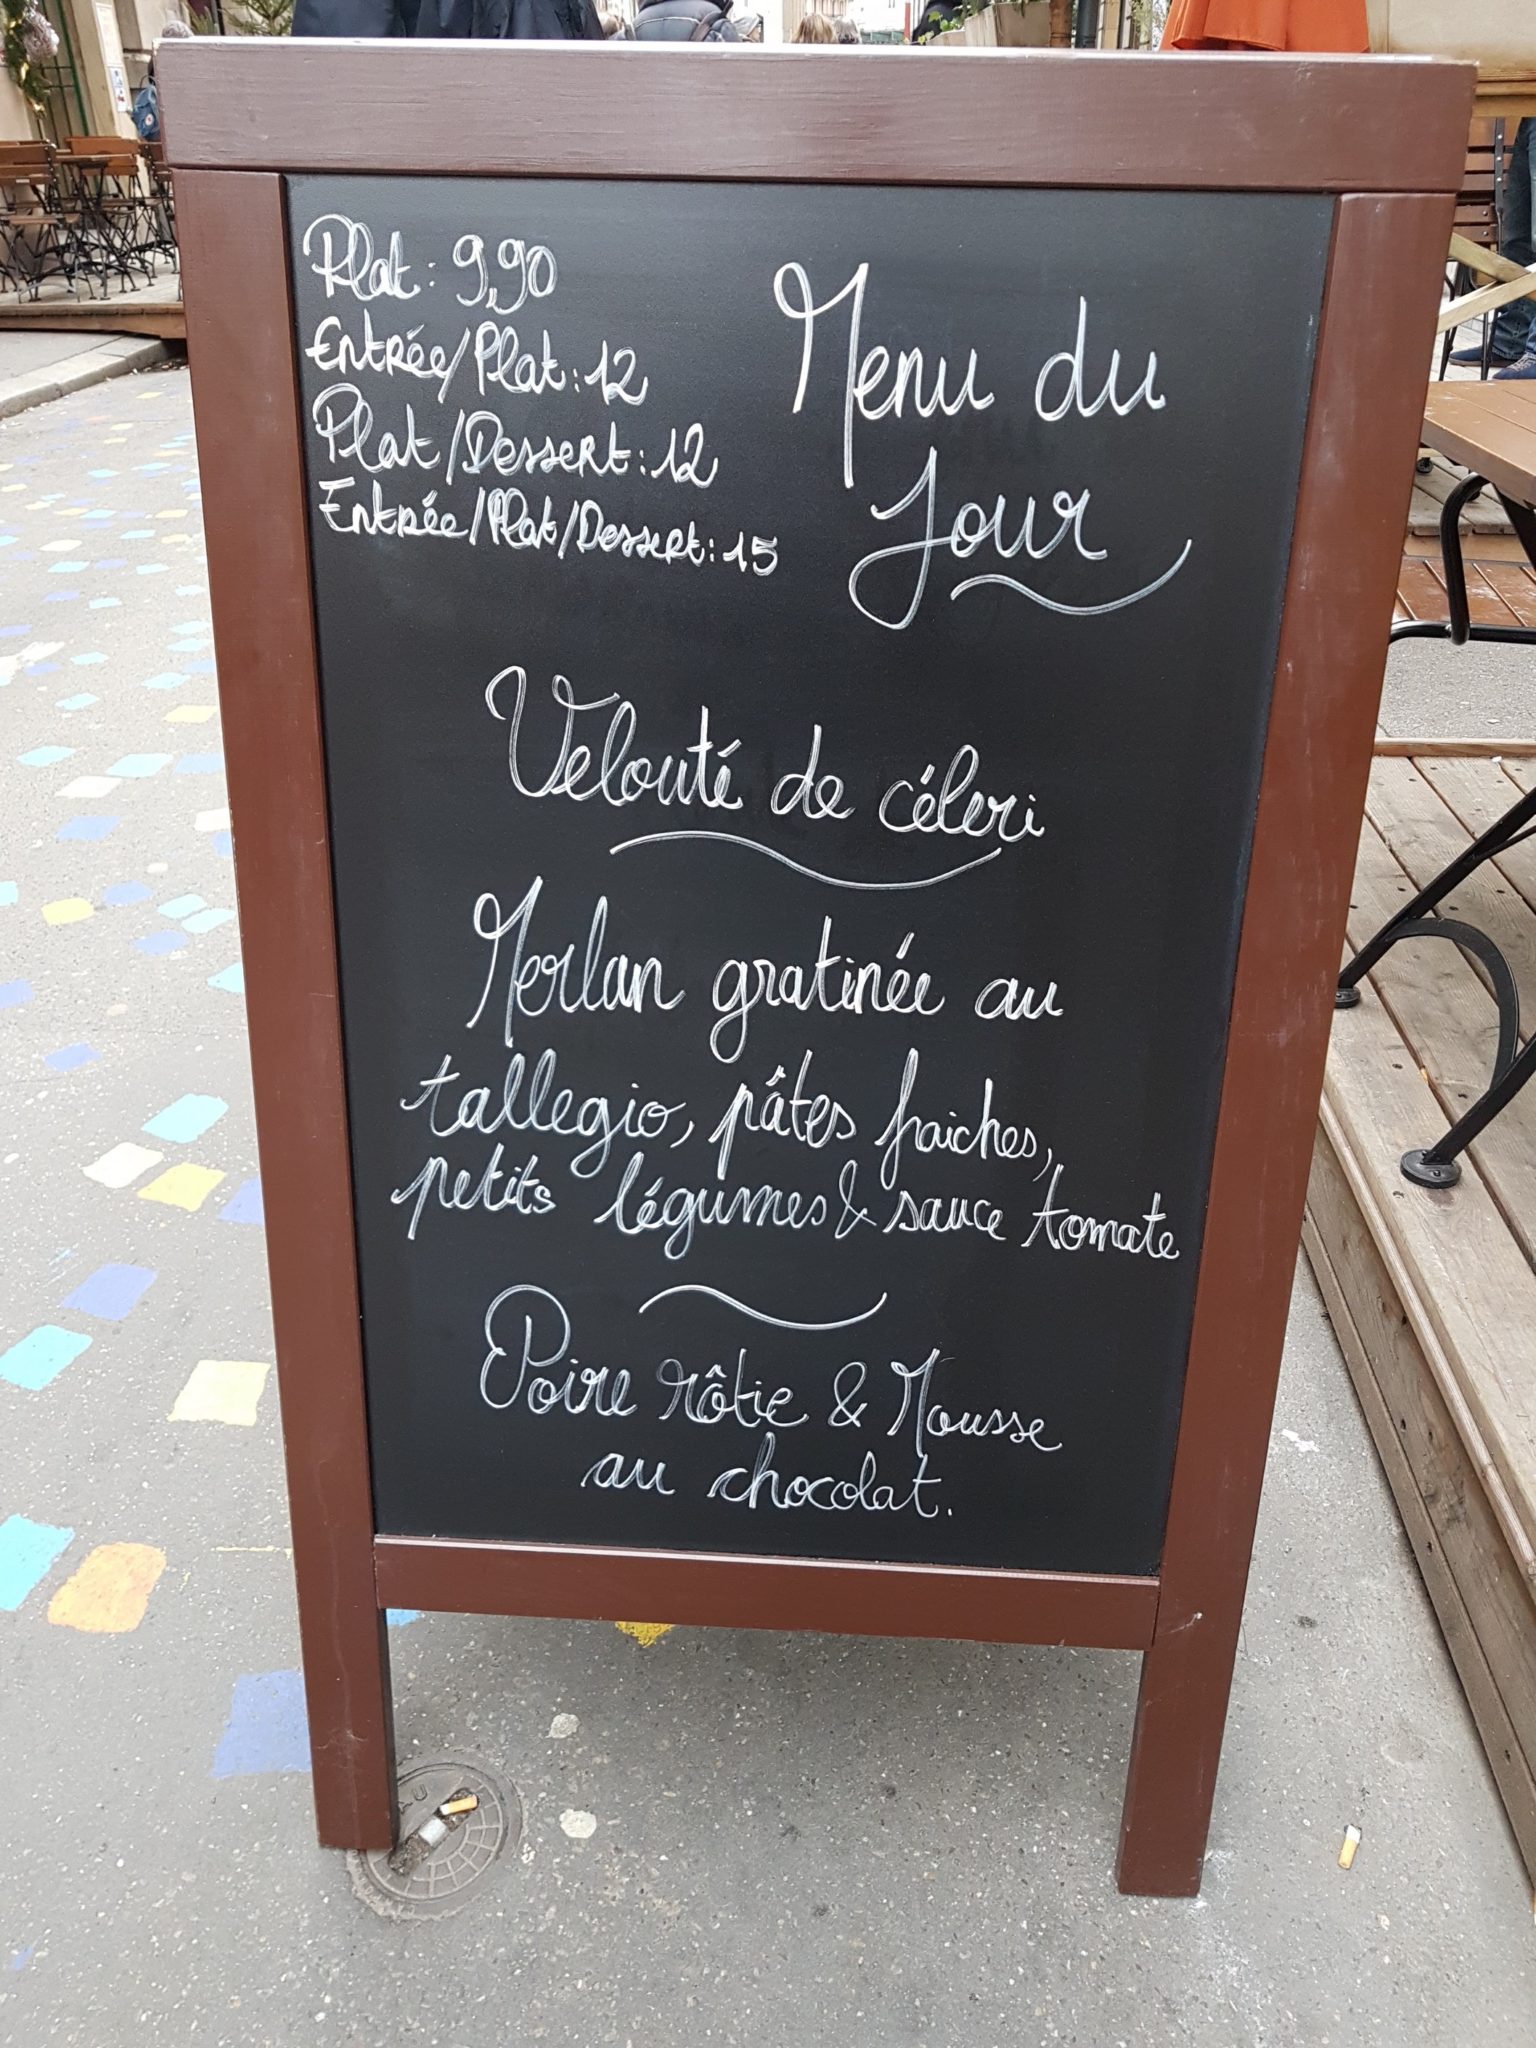 Plat : 9,90
Entrée/Plat : 12
Plat/Dessert : 12
Entrée/Plat/Dessert : 15
Menu du
Jour
Velouté de céleri
Merlan gratinée au
tallegio, pâtes fraiches,
petits légumes & sauce tomate
Poire rôtie & Mousse
au chocolat.